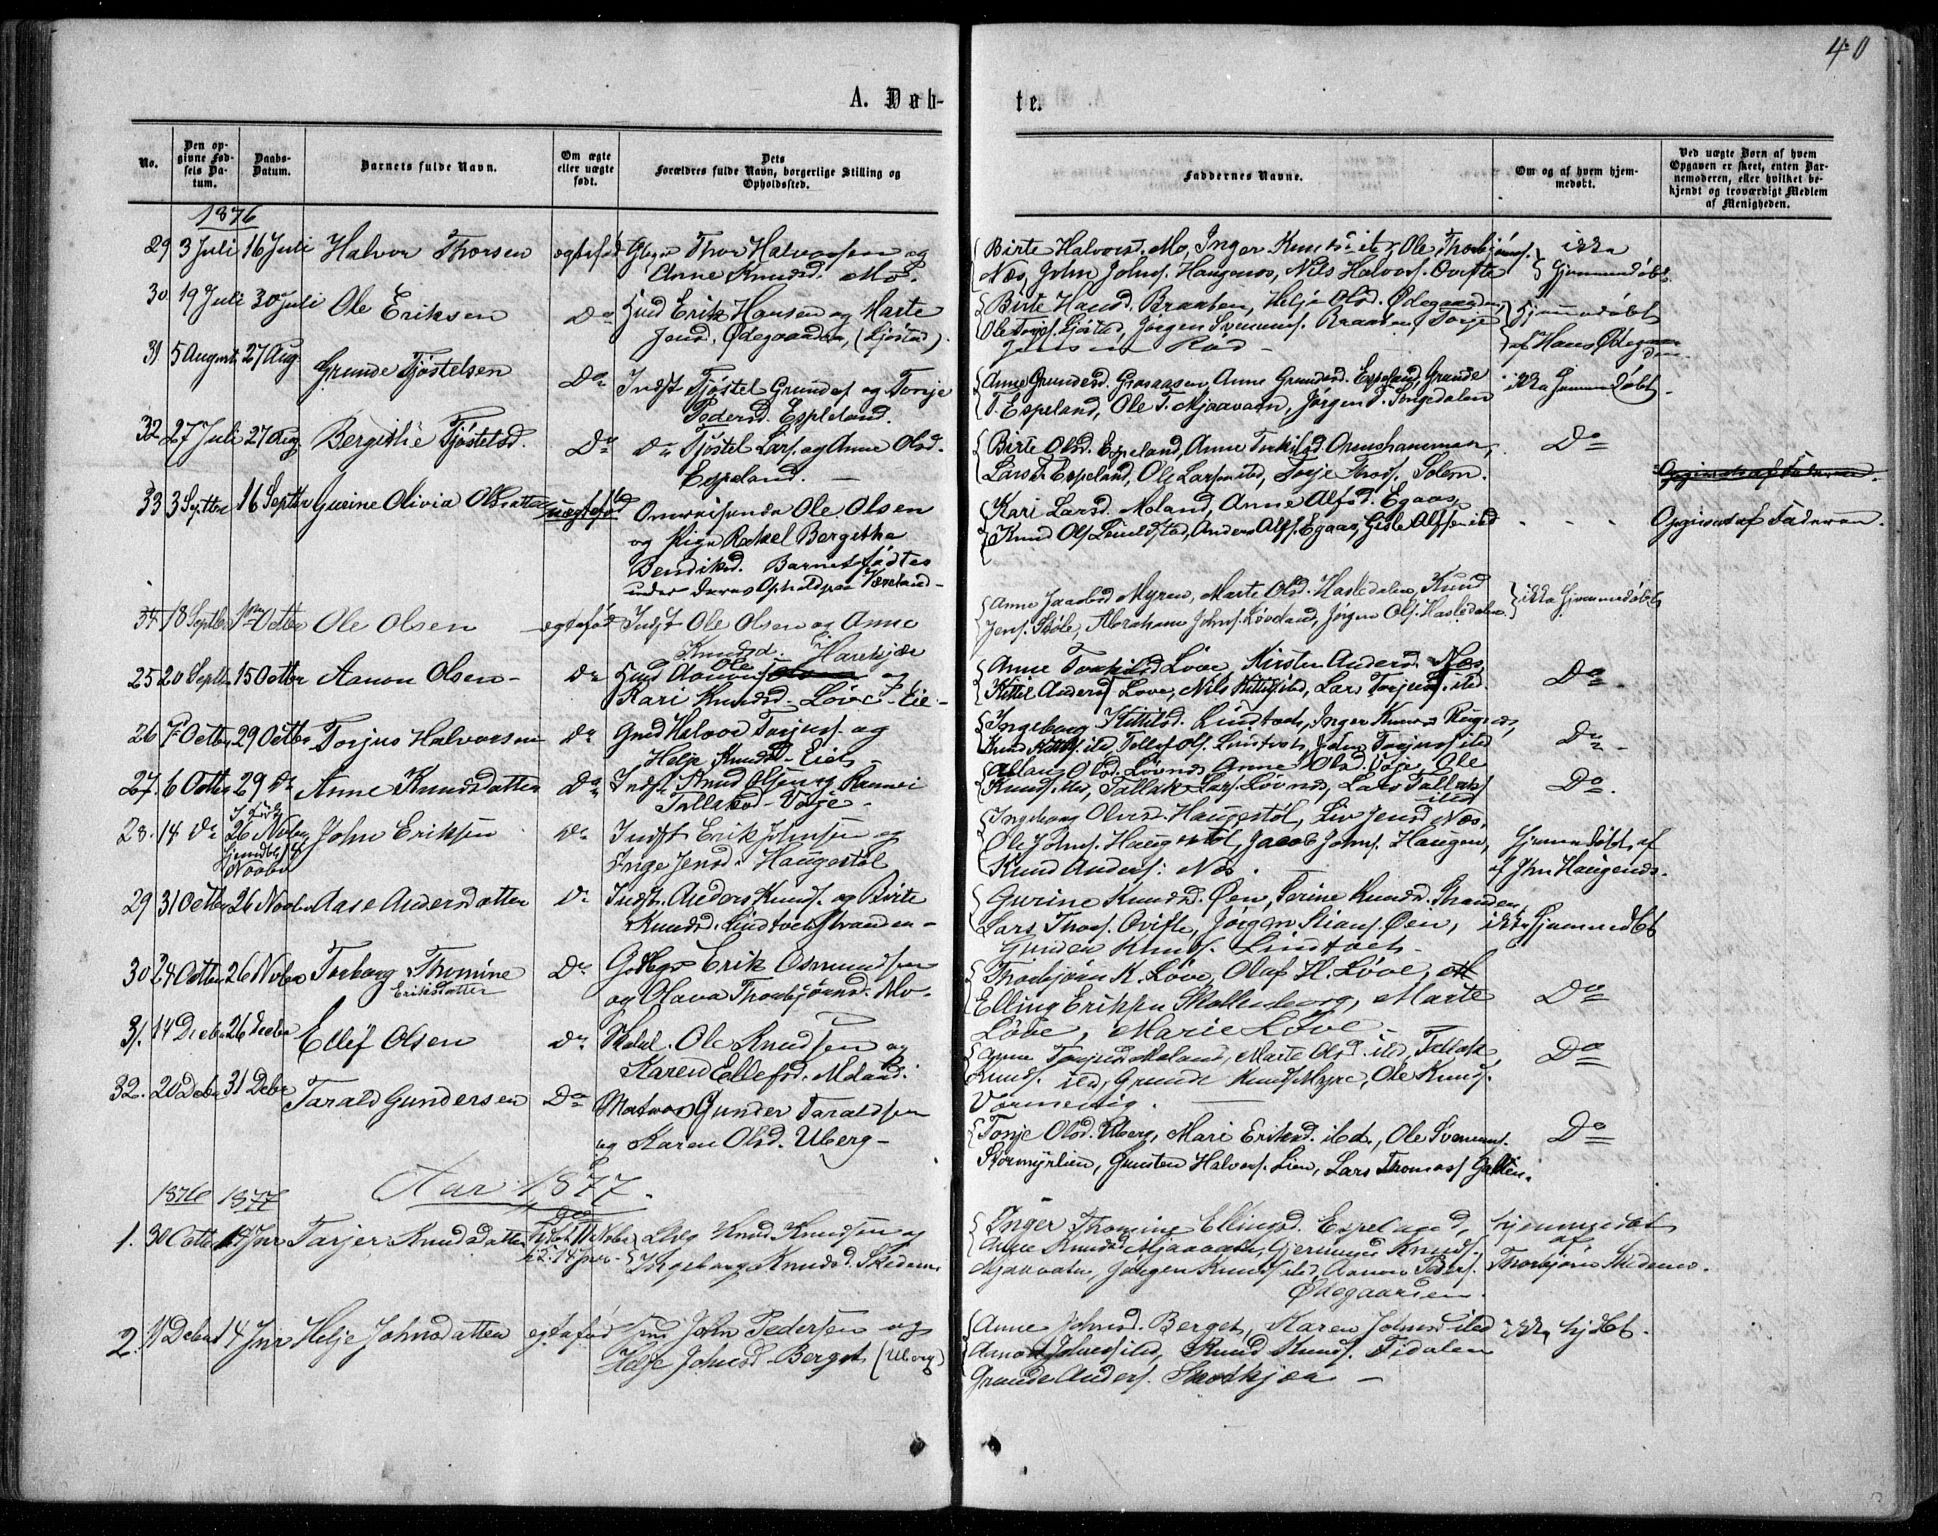 40
A. Døb-
te.
No.
Den op-
givne Fød-
sels Da-
tum.
Daabs-
Datum.
Barnets fulde Navn.
Om ægte
eller uægte
født.
Dets
Forældres fulde Navn, borgerlige Stilling og
Opholdssted.
Faddernes Navne.
Om og af hvem hjem-
medøbt.
Ved uægte Børn af hvem
Opgaven er skeet, enten Bar-
nemoderen, eller hvilket be-
kjendt og troværdigt Medlem
af Menigheden.
1876
29 3 Juli 16 Juli Halvor Thorsen egtefød Thor Halvorsen og
Anne Knudsd. Mo.
Birte Halvorsd. Mo, Inger Knudsd. ibd, Ole Thorbjørns.
Næs, John Johns. Haugenes, Nils Halvors. Ovrfte
ikke
Hjemmedøbt
30 19 Juli 30 Juli Ole Eriksen Do Husd Erik Hansen og Marte
Jensd. Ødegaarden, (Ljøstad).
Birte Hansd. Braaten, Helje Olsd. Ødegaarden,
Ole Torjes. Ljøstad, Jørgen Svennungs. Braaten, Torje
Jensen Rød -
Hjemmedøbt
af Hans Ødegaar
den.
31 5 August 27 Aug. Grunde Tjøstelsen Do Indst Tjøstel Grundes. og Tonje
Pedersd. Espeland.
Anne Grundesd. Graaasen, Anne Grundesd. Espeland, Grunde
T. Espeland, Ole T. Mjaavatn, Jørgen T. Tongedalen
ikke Hjemmedøbt
32 27 Juli 27 Aug Bergithe Tjøstelsd. Do Do Tjøstel Lars. og Anne Olsd.
Espeland. -
Birte Olsd. Espeland, Anne Terkilsd.
Lars T. Espeland, Ole Larsen ibd, Torje Thors. Solem.
Do
33 3 Septbr 16 Septbr Gurine Olivia Olsdatter uægtefød Omreisende Ole Olsen
og Pige Rakel Bergithe
Bendiksd. Barnet fødtes
under deres Ophold paa Væreland -
Kari Larsd. Moland, Anne Alfsd. Egaas,
Knud Ols. Lauldstad, Anders Alfs. Egaas, Gisle Alfsen ibd
- - -
Opgivet af Faderen.
Opgivet af Faderen.
34 18 Septbr 1ste Octbr Ole Olsen egtefød Indst Ole Olsen og Anne
Knudsd. Harekjær
Anne Jacobsd. Myren, Marte Olsd. Hasledalen, Knud
Jens. Støle, Abraham Johns. Løvdal, Jørgen Ols. Hasledalen.
ikke Hjemmedøbt
25 20 Septbr 15 Octbr Aanon Olsen - Do Husd Ole Aanons. og
Kari Knudsd. Løve Eie -
Anne Torkildsd Løve, Kirsten Andersd. Næs,
Kittil Anders Løve, Nils Kittels. ibd, Lars Torjus. ibd.
Do
26 7 Octbr 29 Octbr Torjus Halvorsen Do Gmd Halvor Torjuss. og
Helje Knudsd. Eiet
Ingeborg Kittilsd. Lindtveit, Inger Knudsd Ringenes,
Knud Kittils. ibd, Tallef Ols. Lindtveit, John Torjuss. ibd
Do
27 6 Octbr 29 Do Anne Knudsdatter Do Indst Knud Olsen og Ranvei
Tallaksd. Voje -
Aslaug Olsd. Løvnes, Anne Olsd. Voje, Ole
Knuds. ibd, Tallak Lars. Løvnes, Lars Tallaks.
ibd
Do
28. 14 Do I Kirke
26 Novbr
hjemdøbt 14
Novbr
John Eriksen Do Indst Erik Johnsen og
Inge Jensd. Haugestøl
Ingeborg Olvesd. Haugestøl, Liv Jensd. Næs,
Ole Johns. Haugestøl, Jacob Johns. Haugen,
Knud Anders. Næs.
Hjemmedøbt af
af John Haugenes.
29 31 Octbr 26 Novbr Aase Andersdatter Do Indst. Anders Knuds. og Birte
Knudsd. Lindtveitstranden -
Gurine Knudsd. Øen, Serine Knudsd. Stranden,
Lars Thors. Ovifte, Jørgen Stians. Øen,
Gunder Knuds. Lindtveit.
ikke Hjemmedøbt
30 24 Octbr 26 Novbr Torborg Thomine
Eriksdatter
Do Erik Osmundsen
og Olava Thorbjørnsd. Mo.
Thorbjørn K. Løve, Olaf H. Løve,
Elling Eriksen Skollenborg, Marte
Løve, Marie Løve.
Do
31. 14 Decbr 26 Decbr Ellef Olsen Do Ole Knudsen og
Karen Ellefsd. Moland.
Anne Torjusd. Moland, Marte Olsd. ibd, Tallak
Knuds. ibd, Grunde Knuds. Myre, Ole Knuds.
Vormevig. -
Do
32. 20 Decbr 31 Decbr Tarald Gundersen Do Matros Gunder Taraldsen
og Karen Olsd. Uberg -
Tonje Olsd. Uberg, Mari Eriksd. ibd., Ole Svennungs.
Stormyrlien, Gunsten Halvors. Lien, Lars Thomas. Galtien.
Do
Aar 1877.
1876 1877
1. 30 Octbr 14 Jnr Tarjer Knudsdatter Knud Knudsen og
Ingeborg Knudsd. Skidemo
Inger Thomine Ellingsd. Espeland,
Anne Knudsd. Mjaavatn, Knuds.
Mjaavatn, Jørgen Knuds. ibd, Aanon Peders.
Ødegaarden.
hjemmedøbt
af
Thorbjørn Skidemo.
2. Decbr 14 Jnr Helje Johnsdatter egtefød Husd John Pedersen og
Helje Johnsd. Berget (Uberg)
Anne Johnsd. Berget, Karen Johnsd. ibd
Johns. ibd, Knud Knuds. Fidalen
Grunde Anders. Storkjær -
ikke hjdbt.